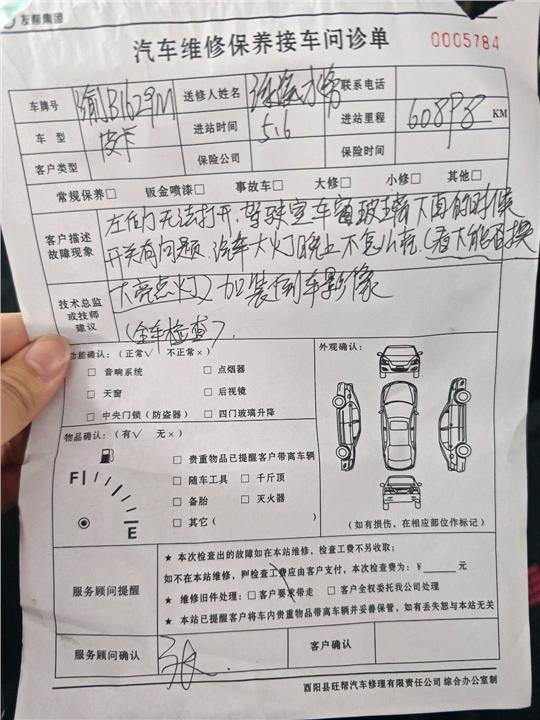 友帮集团
汽车维修保养接车问诊单 0005784
车牌号 渝B1629M 送修人姓名 联系电话
车 型 皮卡 进站时间 5.6 进站里程 60898 KM
客户类型 保险公司 保险时间
常规保养□ 钣金喷漆□ 事故车□ 大修□ 小修□ 其他□
客户描述故障现象 左后门无法打开.驾驶室车窗玻璃下真的时候
开关有问题.汽车大灯晚上不怎么亮.(看大能否换
技术总监或技师建议 大亮点灯)加装倒车影像
(全车检查).
功能确认:(正常√ 不正常×) 外观确认:
□ 音响系统 □ 点烟器
□ 天窗 □ 后视镜
□ 中央门锁(防盗器) □ 四门玻璃升降
物品确认:(有√ 无×)
□ 贵重物品已提醒客户带离车辆
F □ 随车工具 □ 千斤顶
□ 备胎 □ 灭火器
E □ 其它( )
(如有损伤,在相应部位作标记)
服务顾问提醒
★ 本次检查出的故障如在本站维修,检查工费不另收取;
如不在本站维修,则检查工费应由客户支付,本次检查费为:¥______元
★ 维修旧件处理:□ 客户要求带走 □ 客户全权委托我公司处理
★ 本站已提醒客户将车内贵重物品带离车辆并妥善保管,如有丢失恕与本站无关
服务顾问确认 客户确认
酉阳县旺帮汽车修理有限责任公司 综合办公室制